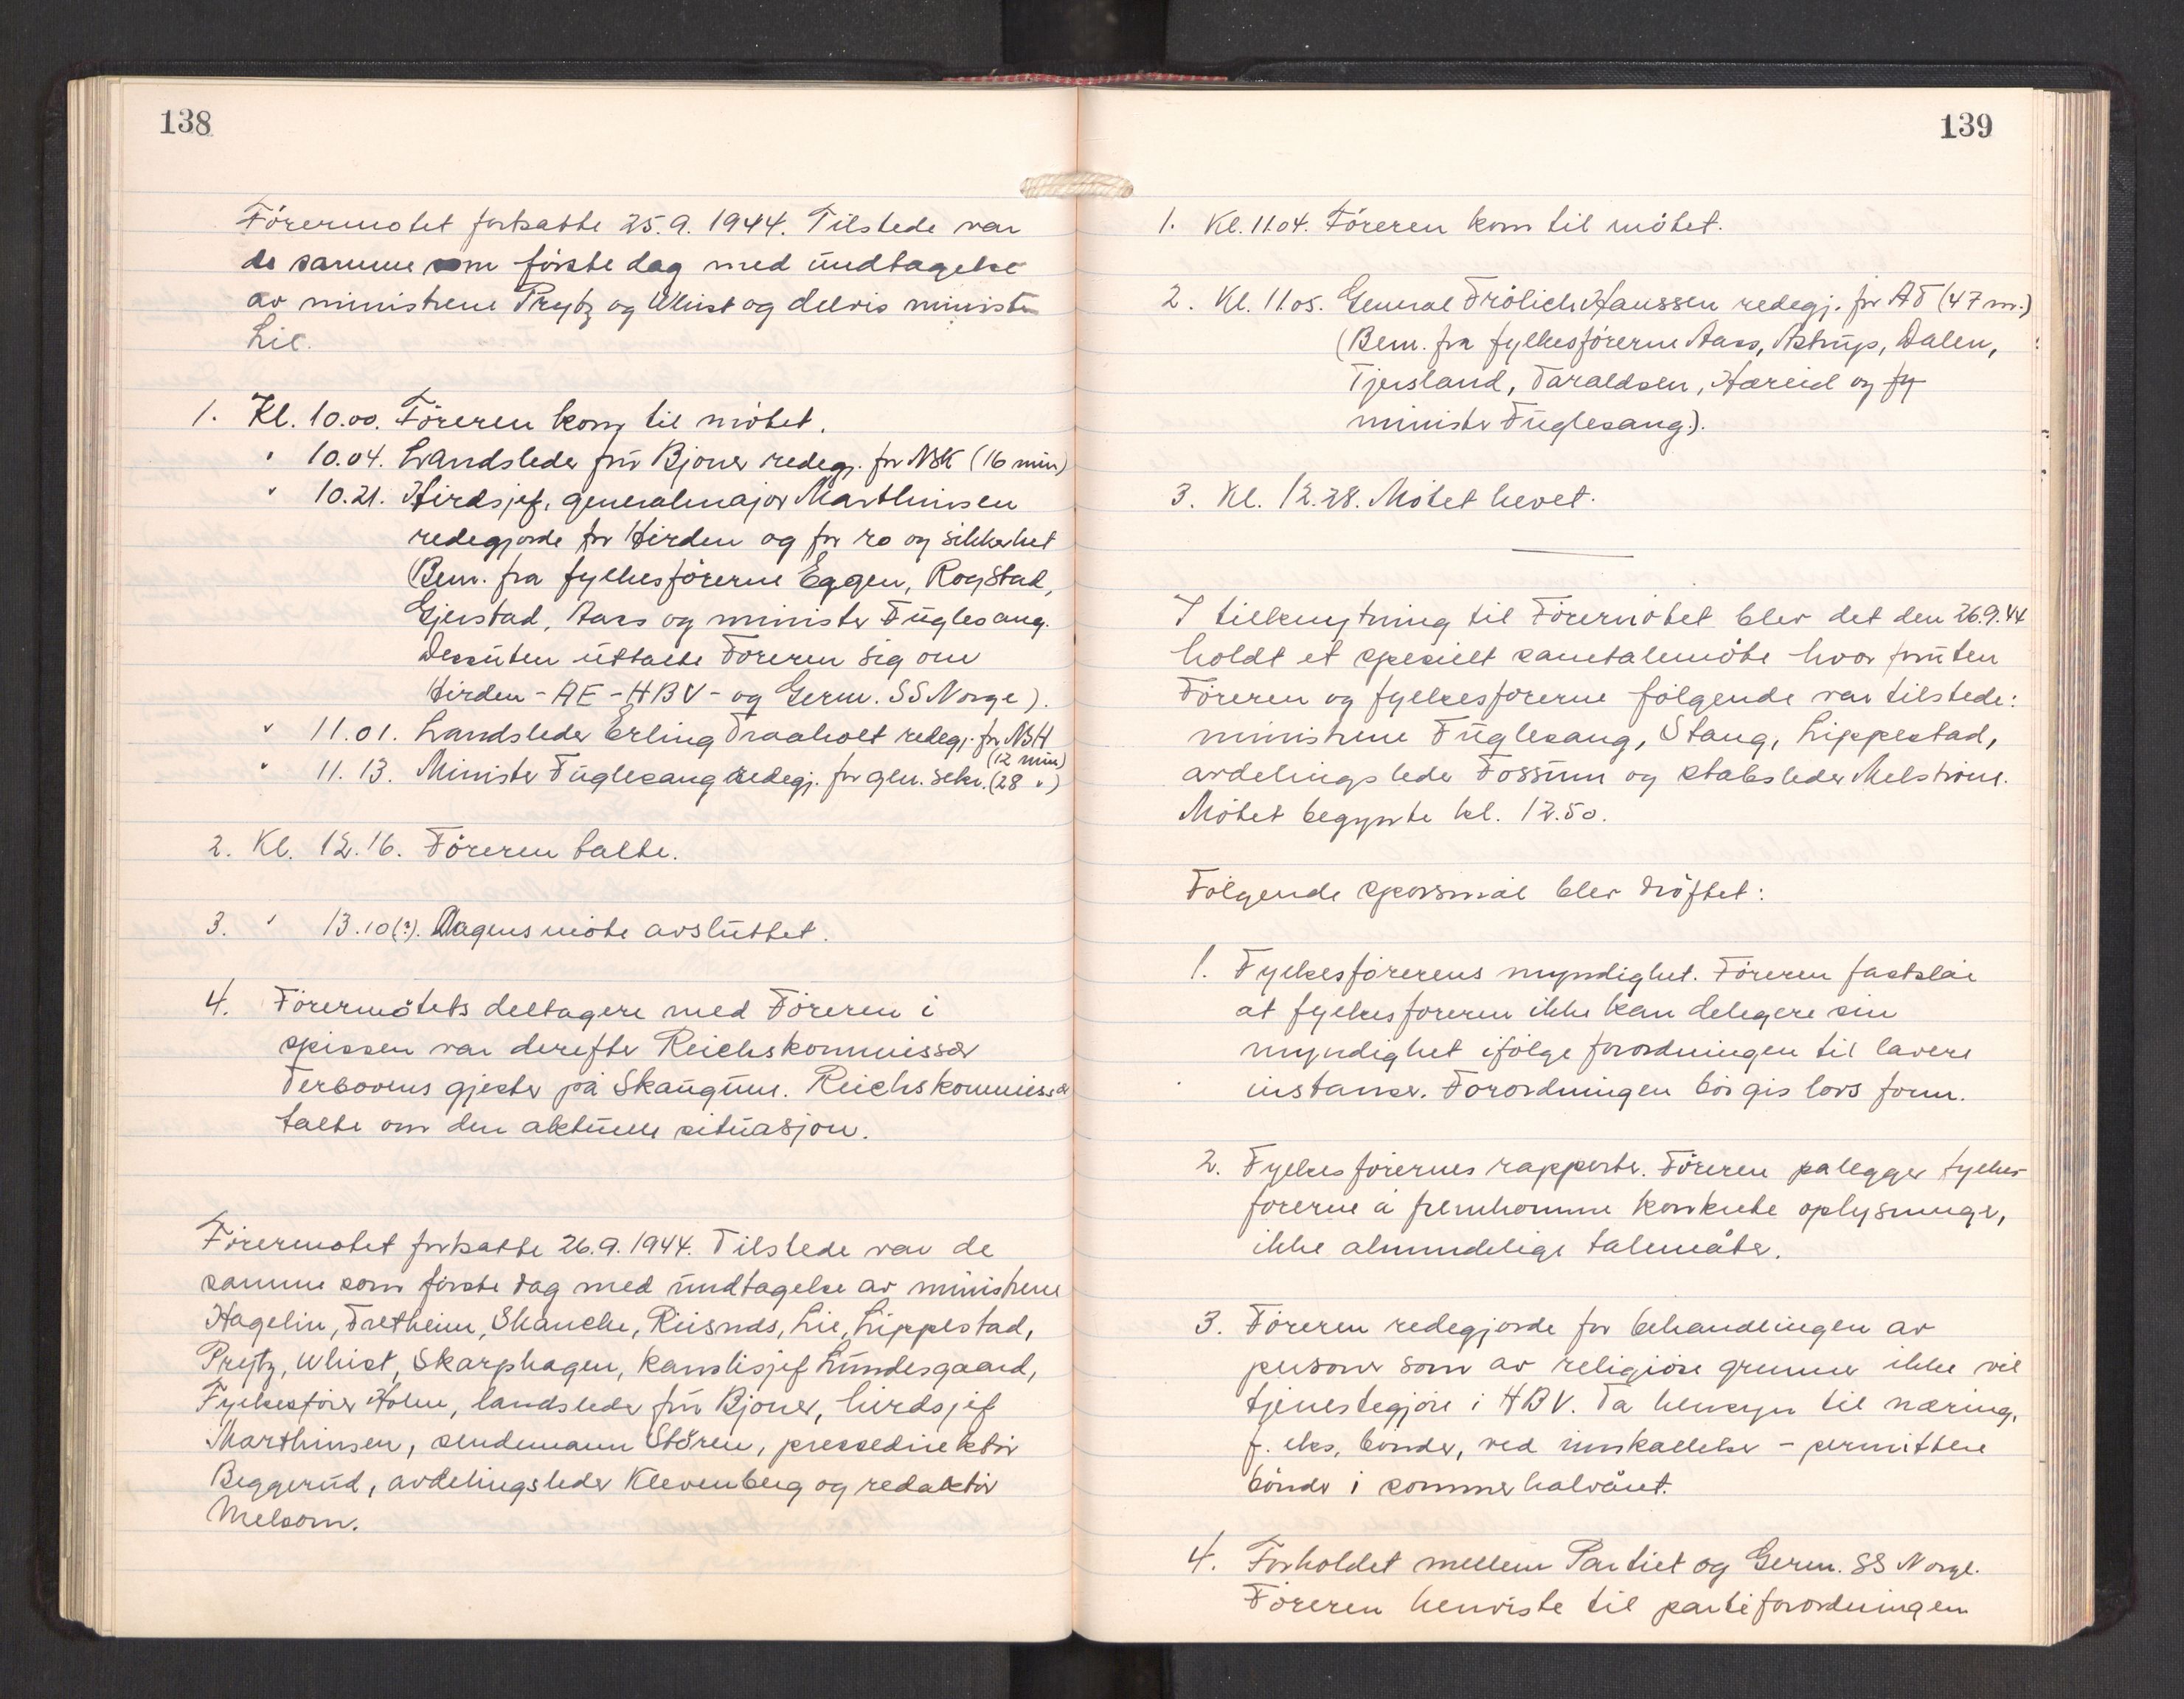 138
Förermøtet fortsatte 25.9.1944. Tilstede var
de samme som förste dag med undtagelse
av ministrene Prytz og Whist og delvis minister
Lie.
1. Kl. 10.00. Föreren kom til mötet.
" 10.04. Landsleder fru Bjoner redegj. for NSK (16 min)
" 10.21. Hirdsjef, generalmajor Marthinsen
redegjorde for Hirden og for ro og sikkerhet
(Bem. fra fylkesförerne Eggen, Rogstad,
Gjerstad, Aass og minister Fuglesang.
Dessuten uttalte Föreren sig om
Hirden - AE - HBV - og Germ. SS Norge).
" 11.01. Landsleder Erling Traaholt redegj. for NSH
(12 min)
" 11.13. Minister Fuglesang redegj. for gen. sekr. (28 ")
2. Kl. 12.16. Föreren talte.
3. " 13.10(?). Dagens möte avsluttet.
4. Förermötets deltagere med Föreren i
spissen var derefter Reichskommissar
Terbovens gjester på Skaugum. Reichskommissar
talte om den aktuelle situasjon.
Förermötet fortsatte 26.9.1944. Tilstede var de
samme som förste dag med undtagelse av ministrene
Hagelin, Fretheim, Skancke, Riisnæs, Lie, Lippestad,
Prytz, Whist, Skarphagen, kanslisjef Lundesgaard,
Fylkesförer Holm, landsleder fru Bjoner, hirdsjef
Marthinsen, sendemann Stören, pressedirektör
Beggerud, avdelingsleder Klevenberg og redaktör
Melsom.
139
1. Kl. 11.04. Föreren kom til mötet.
2. Kl. 11.05. General Frölich Hanssen redegj. for AT (47 m.)
(Bem. fra fylkesförerne Aass, Astrup, Dalen,
Tjersland, Taraldsen, Hareid og fy
minister Fuglesang).
3. Kl. 12.28. Mötet hevet.
I tilknytning til Förermötet blev det den 26.9.44
holdt et spesielt samtalemöte hvor foruten
Föreren og fylkesförerne fölgende var tilstede:
ministrene Fuglesang, Stang, Lippestad,
avdelingsleder Fossum og stabsleder Melström.
Mötet begynte kl. 12.50.
Fölgende spörsmål blev dröftet:
1. Fylkesförerens myndighet. Föreren fastslår
at fylkesföreren ikke kan delegere sin
myndighet ifölge forordningen til lavere
instanser. Forordningen bör gis lovs form.
2. Fylkesförernes rapporter. Föreren pålegger fylkes-
förerne å fremkomme konkrete oplysninger,
ikke almindelige talemåter.
3. Föreren redegjorde for behandlingen av
personer som av religiöse grunner ikke vil
tjenestegjöre i HBV. Ta hensyn til næring,
f. eks. bönder, ved innkallelser - permittere
bönder i sommerhalvåret.
4. Forholdet mellem Partiet og Germ. SS Norge.
Föreren henviste til partiforordningen